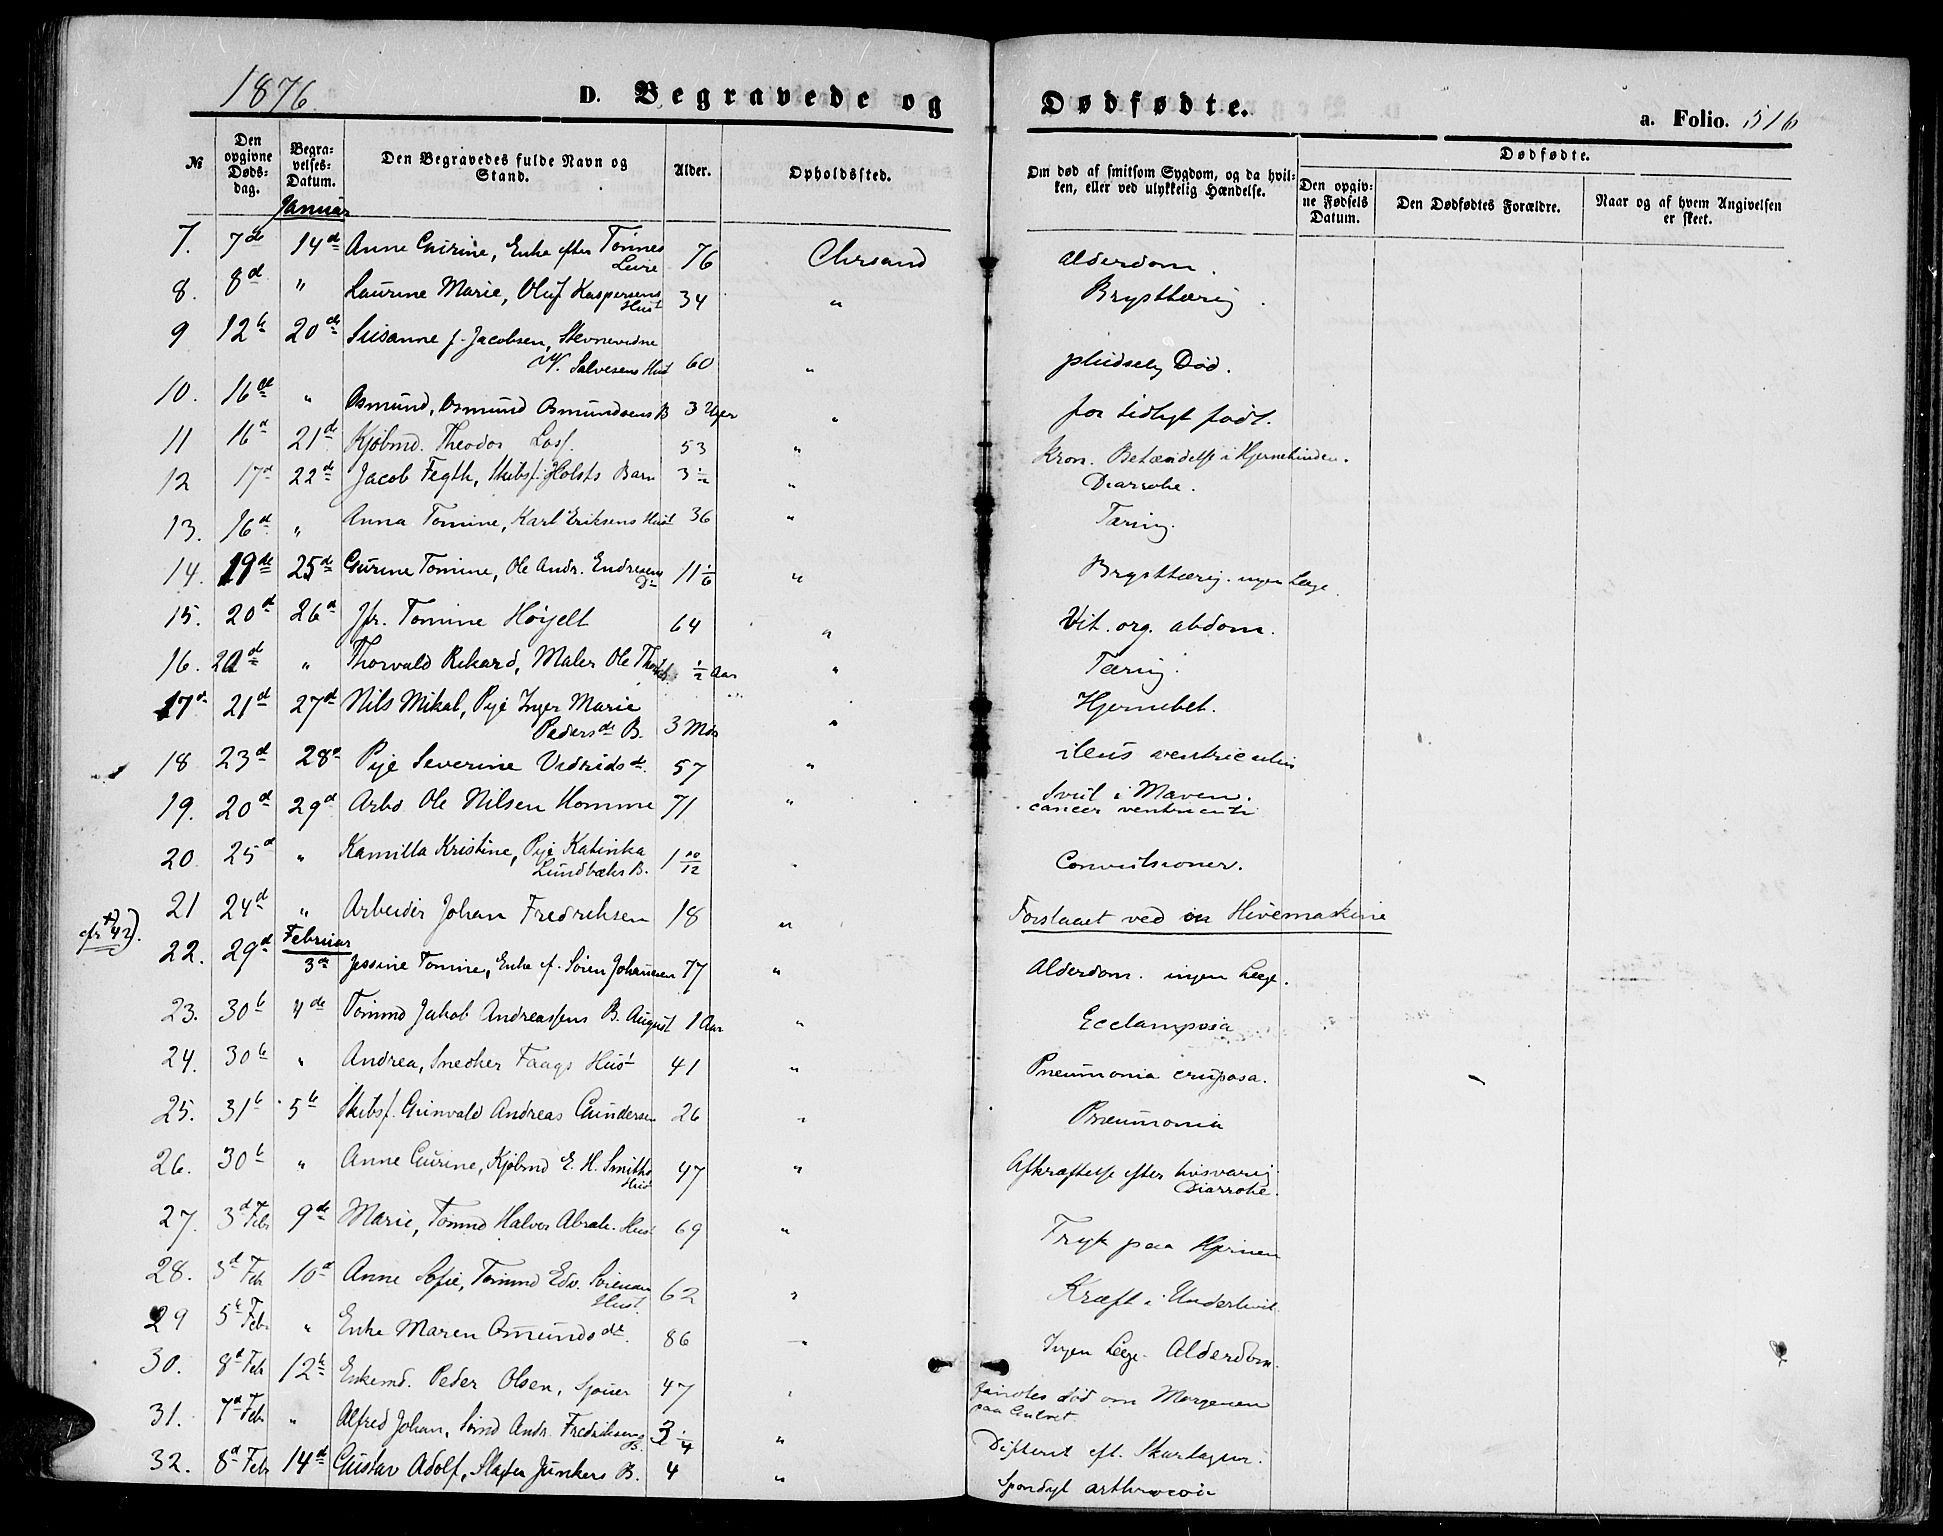 1876.
D. Begravede og Dødfødte.
a. Folio. 516
№
Den opgivne Dødsdag.
Begravelses-Datum.
Den Begravedes fulde Navn og Stand.
Alder.
Opholdssted.
Om død af smitsom Sygdom, og da hvilken, eller ved ulykkelig Hændelse.
Dødfødte.
Den opgivne Fødsels Datum.
Den Dødfødtes Forældre.
Naar og af hvem Angivelsen er skeet.
Januar
7. 7de 14de Anne Gurine, Enke efter Tønnes 76 Chrsand Alderdom.
8. 8d " Laurine Marie, Oluf Kaspersens Hust 34 " Brysttæring.
9 12te 20de Susanne f. Jacobsen, Stevnevidne
N. Salvesens Hust 60 " pludselig Død.
10. 16de " Osmund, Osmund Osmundsens B 3 Uger " for tidligt født.
11 16d 21de Kjøbmd. Theodor 53 " Kron. Betændelse i Hjernehinden.
12 17d 22de Jacob Fegth, Skibsf. Holsts Barn 3½ " Diarrohe.
13. 16d " Anna Tomine, Karl Eriksens Hust 36 " Tæring.
14. 19de 25de Gurine Tomine, Ole Andr. Endresens D. 11 1/6 " Brysttæring. ingen Læge.
15. 20d 26d Jfr. Tomine Høyelt 64 " Vit. org. abdom.
16. 20d " Thorvald Rikard, Maler Ole ½ Aar " Tæring.
17. 21d 27d Nils Mikal, Pige Inger Marie
Pedersdr B. 3 Mdr " Hjernebet.
18 23d 28d Pige Severine 57 " ileus ventriculi
19. 20d 29d Arbd Ole Nilsen Homme 71 " Svul i Maven.
cancer ventriculi
20. 25d " Kamilla Kristine, Pige Katinka
Lundbæks B. 1 10/12 " Convulsioner.
21 24d " Arbeider Johan Fredriksen 18 " Forslaaet ved en Hivemaskine
cfr 42).
Februar
22. 29d 3de Jessine Tomine, Enke ef. Søren Johannesen 77 " Alderdom. ingen Læge.
23. 30te 4de Tømmd Jakob Andreassens B. August 1 Aar " Ecclampsia
24. 30te " Andrea, Snedker Faags Hust 41 " Pneumonia cruposa.
25. 31te 5te Skibsf. Gunvald Andreas Gundersen 26 " Pneumonia
26. 30te " Anne Gurine, Kjøbmd E. H. Smiths Hust 47 " Afkræftelse efter
Diarrohe.
27. 3d Febr 9de Marie, Tømmd Halvor Abrah. Hust 69 " Tryk paa Hjernen
28. 3d Feb 10d Anne Sofie, Tømmd Edv. Sørensen
Hust. 62 " Kræft i Underlivet
29 5te Febr " Enke Maren Omundsdr. 86 " Ingen Læge. Alderdom.
30. 8d Feb 12te Enkemd. Peder Olsen, Sjouer 47 " fandtes død om Morgenen
paa Gulvet.
31. 7d Feb " Alfred Johan, Sømd Andr. Fredriksens B. 3 ¼ " Difterit eft. Skarlagen.
32. 8d Feb 14de Gustav Adolf, Slagter Junkers B. 4 " Spondyl arthrocace